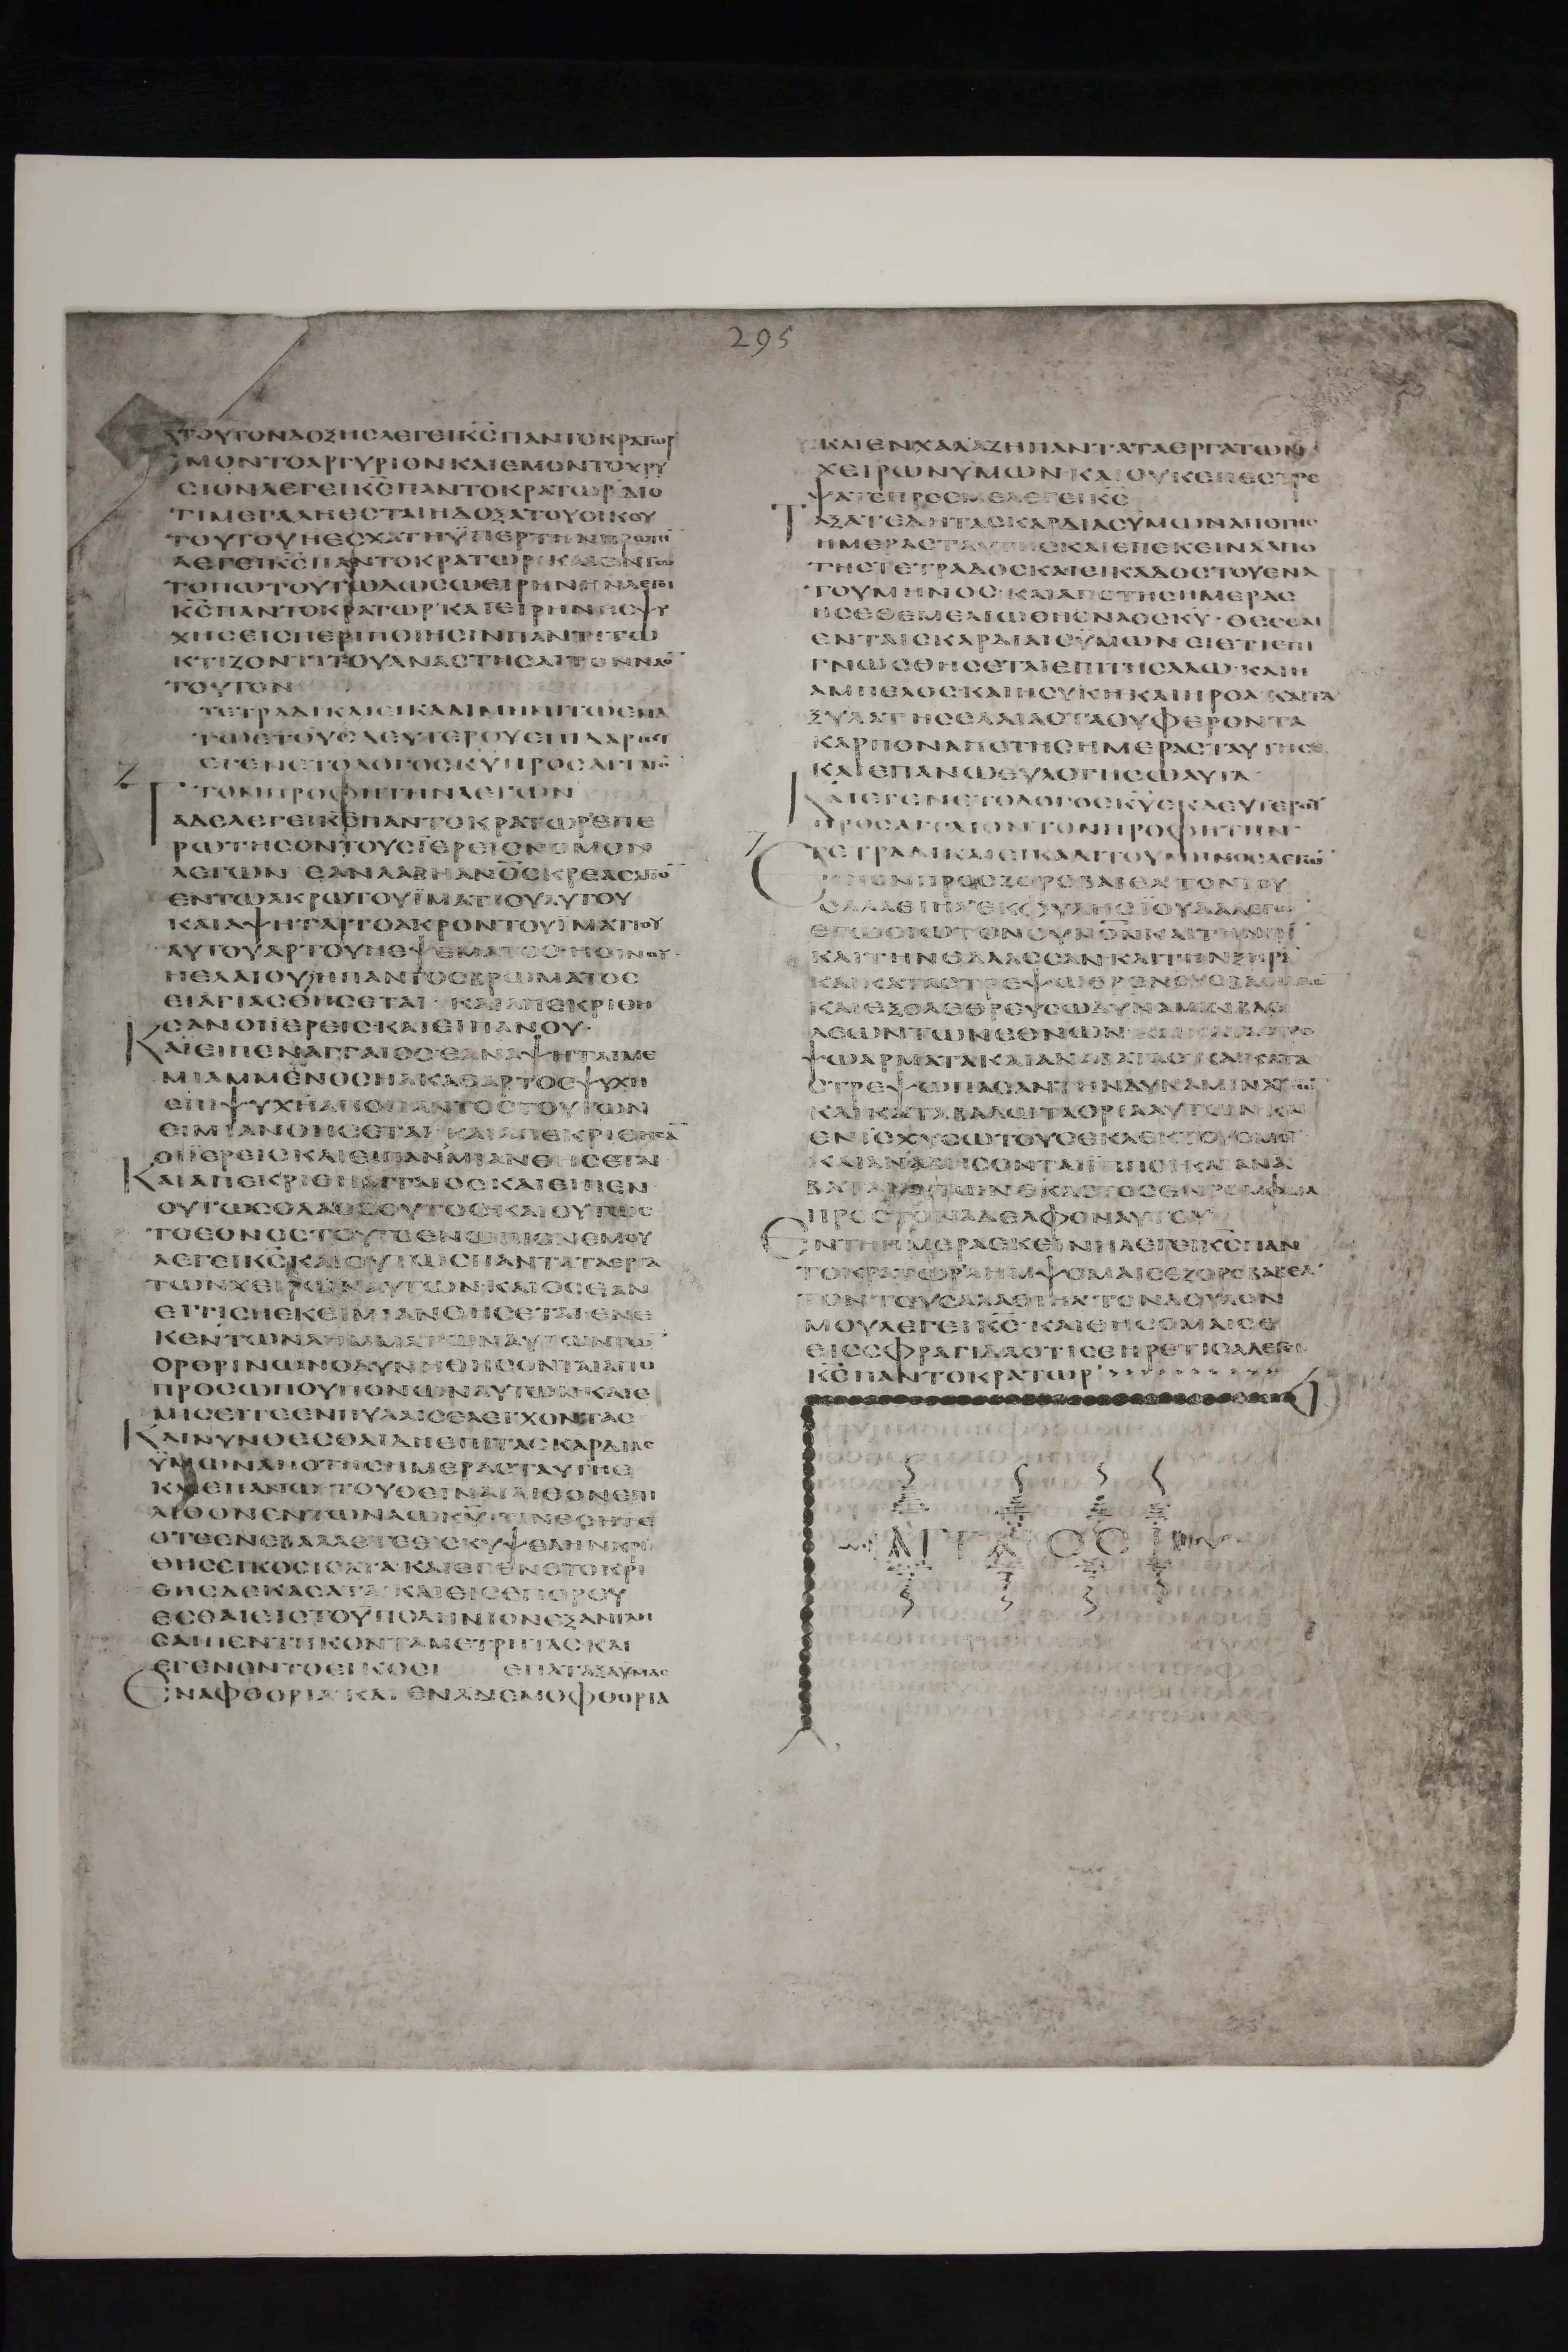 295
ΤΟΥΤΟΝΔΟΞΗΣΛΕΓΕΙΚ̅Σ̅ΠΑΝΤΟΚΡΑΤΩΡ
ΜΟΝΤΟΑΡΓΥΡΙΟΝΚΑΙΕΜΟΝΤΟΧΡΥ
ΣΙΟΝΛΕΓΕΙΚ̅Σ̅ΠΑΝΤΟΚΡΑΤΩΡΔΙΟ
ΤΙΜΕΓΑΛΗΕΣΤΑΙΗΔΟΞΑΤΟΥΟΙΚΟΥ
ΤΟΥΤΟΥΗΕΣΧΑΤΗΫΠΕΡΤΗΝΠΡΩΤΗ̅
ΛΕΓΕΙΚ̅Σ̅ΠΑΝΤΟΚΡΑΤΩΡΚΑΙΕΝΤΩ
ΤΟΠΩΤΟΥΤΩΔΩΣΩΕΙΡΗΝΗΝΛΕΓΕΙ
Κ̅Σ̅ΠΑΝΤΟΚΡΑΤΩΡΚΑΙΕΙΡΗΝΗΨΥ
ΧΗΣΕΙΣΠΕΡΙΠΟΙΗΣΙΝΠΑΝΤΙΤΩ
ΚΤΙΖΟΝΤΙΤΟΥΑΝΑΣΤΗΣΑΙΤΟΝΝΑΟ̅
ΤΟΥΤΟΝ
ΤΕΤΡΑΔΙΚΑΙΕΙΚΑΔΙΜΗΝΙΤΩΕΝΑ
ΤΩΕΤΟΥΣΔΕΥΤΕΡΟΥΕΠΙΔΑΡΙΟΥ
ΕΓΕΝΕΤΟΛΟΓΟΣΚ̅Υ̅ΠΡΟΣΑΓΓΑΙΟ̅
ΤΟΝΠΡΟΦΗΤΗΝΛΕΓΩΝ
ΑΔΕΛΕΓΕΙΚ̅Σ̅ΠΑΝΤΟΚΡΑΤΩΡΕΠΕ
ΡΩΤΗΣΟΝΤΟΥΣΪΕΡΕΙΣΝΟΜΟΝ
ΛΕΓΩΝΕΑΝΛΑΒΗΑΝ̅Ο̅Σ̅ΚΡΕΑΣΑΓΙΟ̅
ΕΝΤΩΑΚΡΩΤΟΥΪΜΑΤΙΟΥΑΥΤΟΥ
ΚΑΙΑΨΗΤΑΙΤΟΑΚΡΟΝΤΟΥΪΜΑΤΙΟΥ
ΑΥΤΟΥΑΡΤΟΥΗΕΨΕΜΑΤΟΣΗΟΙΝΟΥ
ΗΕΛΑΙΟΥΗΠΑΝΤΟΣΒΡΩΜΑΤΟΣ
ΕΙΑΓΙΑΣΘΗΣΕΤΑΙΚΑΙΑΠΕΚΡΙΘΗ
ΣΑΝΟΙΪΕΡΕΙΣΚΑΙΕΙΠΑΝΟΥ
ΚΑΙΕΙΠΕΝΑΓΓΑΙΟΣΕΑΝΑΨΗΤΑΙΜΕ
ΜΙΑΜΜΕΝΟΣΗΑΚΑΘΑΡΤΟΣΨΥΧΗ
ΕΠΙΨΥΧΗΑΠΟΠΑΝΤΟΣΤΟΥΤΩΝ
ΕΙΜΙΑΝΘΗΣΕΤΑΙΚΑΙΑΠΕΚΡΙΘΗΣΑ̅
ΟΙΪΕΡΕΙΣΚΑΙΕΙΠΑΝΜΙΑΝΘΗΣΕΤΑΙ
ΚΑΙΑΠΕΚΡΙΘΗΑΓΓΑΙΟΣΚΑΙΕΙΠΕΝ
ΟΥΤΩΣΟΛΑΟΣΟΥΤΟΣΚΑΙΟΥΤΩΣ
ΤΟΕΘΝΟΣΤΟΥΤΟΕΝΩΠΙΟΝΕΜΟΥ
ΛΕΓΕΙΚ̅Σ̅ΚΑΙΟΥΤΩΣΠΑΝΤΑΤΑΕΡΓΑ
ΤΩΝΧΕΙΡΩΝΑΥΤΩΝΚΑΙΟΣΕΑΝ
ΕΓΓΙΣΗΕΚΕΙΜΙΑΝΘΗΣΕΤΑΙΕΝΕ
ΚΕΝΤΩΝΛΗΜΜΑΤΩΝΑΥΤΩΝΤΩ̅
ΟΡΘΡΙΝΩΝΟΔΥΝΗΘΗΣΟΝΤΑΙΑΠΟ
ΠΡΟΣΩΠΟΥΠΟΝΩΝΑΥΤΩΝΚΑΙΕ
ΜΙΣΕΙΤΕΕΝΠΥΛΑΙΣΕΛΕΓΧΟΝΤΑΣ
ΚΑΙΝΥΝΘΕΣΘΑΙΔΗΕΠΙΤΑΣΚΑΡΔΙΑΣ
ΫΜΩΝΑΠΟΤΗΣΗΜΕΡΑΣΤΑΥΤΗΣ
ΚΑΙΕΠΑΝΩΤΟΥΘΕΙΝΑΙΛΙΘΟΝΕΠΙ
ΛΙΘΟΝΕΝΤΩΝΑΩΚ̅Υ̅ΤΙΝΕΣΗΤΕ
ΟΤΕΕΝΕΒΑΛΛΕΤΕΕΙΣΚΥΨΕΛΗΝΚΡΙ
ΘΗΣΕΙΚΟΣΙΣΑΤΑΚΑΙΕΓΕΝΕΤΟΚΡΙ
ΘΗΣΔΕΚΑΣΑΤΑΚΑΙΕΙΣΕΠΟΡΕΥ
ΕΣΘΑΙΕΙΣΤΟΫΠΟΛΗΝΙΟΝΕΞΑΝΤΛΗ
ΣΑΙΠΕΝΤΗΚΟΝΤΑΜΕΤΡΗΤΑΣΚΑΙ
ΕΓΕΝΟΝΤΟΕΙΚΟΣΙ ΕΠΑΤΑΞΑΫΜΑΣ
ΕΝΑΦΘΟΡΙΑΚΑΙΕΝΑΝΕΜΟΦΘΟΡΙΑ
ΚΑΙΕΝΧΑΛΑΖΗΠΑΝΤΑΤΑΕΡΓΑΤΩΝ
ΧΕΙΡΩΝΥΜΩΝΚΑΙΟΥΚΕΠΕΣΤΡΕ
ΨΑΤΕΠΡΟΣΜΕΛΕΓΕΙΚ̅Σ̅
ΤΑΞΑΤΕΔΗΤΑΣΚΑΡΔΙΑΣΥΜΩΝΑΠΟΤΗΣ
ΗΜΕΡΑΣΤΑΥΤΗΣΚΑΙΕΠΕΚΕΙΝΑΑΠΟ
ΤΗΣΤΕΤΡΑΔΟΣΚΑΙΕΙΚΑΔΟΣΤΟΥΕΝΑ
ΤΟΥΜΗΝΟΣΚΑΙΑΠΟΤΗΣΗΜΕΡΑΣ
ΗΣΕΘΕΜΕΛΙΩΘΗΟΝΑΟΣΚ̅Υ̅ΘΕΣΘΑΙ
ΕΝΤΑΙΣΚΑΡΔΙΑΙΣΫΜΩΝΕΙΕΤΙΕΠΙ
ΓΝΩΣΘΗΣΕΤΑΙΕΠΙΤΗΣΑΛΩΚΑΙΗ
ΑΜΠΕΛΟΣΚΑΙΗΣΥΚΗΚΑΙΗΡΟΑΚΑΙΤΑ
ΞΥΛΑΤΗΣΕΛΑΙΑΣΤΑΟΥΦΕΡΟΝΤΑ
ΚΑΡΠΟΝΑΠΟΤΗΣΗΜΕΡΑΣΤΑΥΤΗΣ
ΚΑΙΕΠΑΝΩΕΥΛΟΓΗΣΩΑΥΤΑ
ΚΑΙΕΓΕΝΕΤΟΛΟΓΟΣΚ̅Υ̅ΕΚΔΕΥΤΕΡΟΥ
ΠΡΟΣΑΓΓΑΙΟΝΤΟΝΠΡΟΦΗΤΗΝ
ΤΕΤΡΑΔΙΚΑΙΕΙΚΑΔΙΤΟΥΜΗΝΟΣΛΕΓΩ̅
ΕΙΠΟΝΠΡΟΣΖΟΡΟΒΑΒΕΛΤΟΝΤΟΥ
ΣΑΛΑΘΙΗΛΕΚΦΥΛΗΣΪΟΥΔΑΛΕΓΩ
ΕΓΩΣΙΩΤΟΝΟΥΝΟΝΚΑΙΤΗΝΓΗ̅
ΚΑΙΤΗΝΘΑΛΑΣΣΑΝΚΑΙΤΗΝΞΗΡΑ̅
ΚΑΙΚΑΤΑΣΤΡΕΨΩΘΡΟΝΟΥΣΒΑΣΙΛΕΩ
ΚΑΙΕΞΟΛΕΘΡΕΥΣΩΔΥΝΑΜΙΝΒΑΣΙ
ΛΕΩΝΤΩΝΕΘΝΩΝΚΑΙΚΑΤΑΣΤΡΕ
ΨΩΑΡΜΑΤΑΚΑΙΑΝΑΒΑΤΑΣΚΑΙΚΑΤΑ
ΣΤΡΕΨΩΠΑΣΑΝΤΗΝΔΥΝΑΜΙΝΑΥΤΩ̅
ΚΑΙΚΑΤΑΒΑΛΩΤΑΟΡΙΑΑΥΤΩΝΚΑΙ
ΕΝΙΣΧΥΣΩΤΟΥΣΕΚΛΕΚΤΟΥΣΜΟΥ
ΚΑΙΑΝΑΒΗΣΟΝΤΑΙΪΠΠΟΙΚΑΙΑΝΑ
ΒΑΤΑΙΑΥΤΩΝΕΚΑΣΤΟΣΕΝΡΟΜΦΑΙΑ
ΠΡΟΣΤΟΝΑΔΕΛΦΟΝΑΥΤΟΥ
ΕΝΤΗΗΜΕΡΑΕΚΕΙΝΗΛΕΓΕΙΚ̅Σ̅ΠΑΝ
ΤΟΚΡΑΤΩΡΛΗΜΨΟΜΑΙΣΕΖΟΡΟΒΑΒΕΛ
ΤΟΝΤΟΥΣΑΛΑΘΙΗΛΤΟΝΔΟΥΛΟΝ
ΜΟΥΛΕΓΕΙΚ̅Σ̅ΚΑΙΘΗΣΟΜΑΙΣΕ
ΕΙΣΣΦΡΑΓΙΔΑΟΤΙΣΕΗΡΕΤΙΣΑΛΕΓΕΙ
Κ̅Σ̅ΠΑΝΤΟΚΡΑΤΩΡ
ΑΓΓΑΙΟΣ Ι